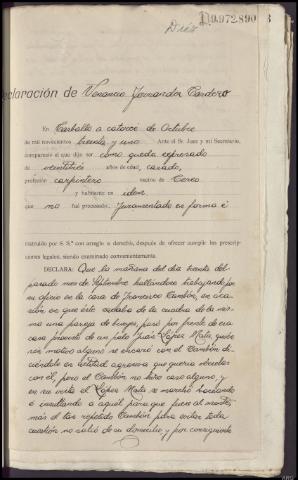 D 9.972.890
Diés
eclaración de Venancio Fernandez Cardero
En Carballo a catorce de Octubre
de mil novecientos treinta y uno Ante el Sr. Juez y mi Secretario,
compareció el que dijo ser como queda expresado
de veintitrés años de edad, casado,
profesión carpintero natural de Cerceo
y habitante en idem.
que no fué procesado; Juramentado en forma é
instruído por S. Sª con arreglo a derecho, después de ofrecer cumplir las prescrip-
ciones legales, siendo examinado convenientemente.
DECLARA: Que la mañana del dia treinta del
pasado mes de Septiembre hallandose trabajando por
su oficio en la casa de Francisco Cambón, en oca-
sión en que éste sacaba de la cuadra de la mis-
ma una pareja de bueyes, pasó por frente de esa
casa provisto de un palo Juan López Mata, quien
sin motivo alguno se encaró con el Cambón di-
ciéndole en actitud agresora que queria
con él, pero el Cambón no hizo caso alguno y
en su vista el López Mata se marchó
é insultando a aquel para que fuera al monte,
más el tan repetido Cambón para evitar toda
cuestión no salió de su domicilio y por consiguiente